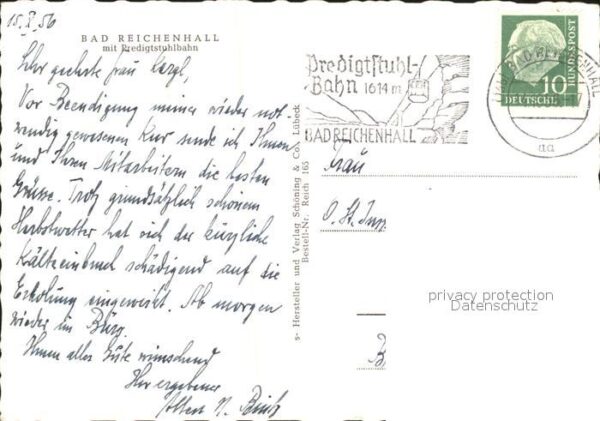 15.X.56
BAD REICHENHALL
mit Predigtstuhlbahn
Sehr geehrte Frau
Vor Beendigung meiner wieder not-
wendig gewesenen Kur sende ich Ihnen
und Ihren Mitarbeitern die besten
Grüsse. Trotz grundsätzlich schönem
Herbstwetter hat sich der kürzliche
Kälteeinbruch schädigend auf die
Erholung eingewirkt. Ab morgen
wieder im Büro.
Ihnen alles Gute wünschend
Ihr ergebener
s- Hersteller und Verlag Schöning & Co., Lübeck
Bestell-Nr. Reich 165
Predigtstuhl-
Bahn 1614 m
BAD REICHENHALL
BAD REICHENHALL
aa
10
DEUTSCHE
BUNDESPOST
Frau
O. St. Insp.
B
privacy protection
Datenschutz